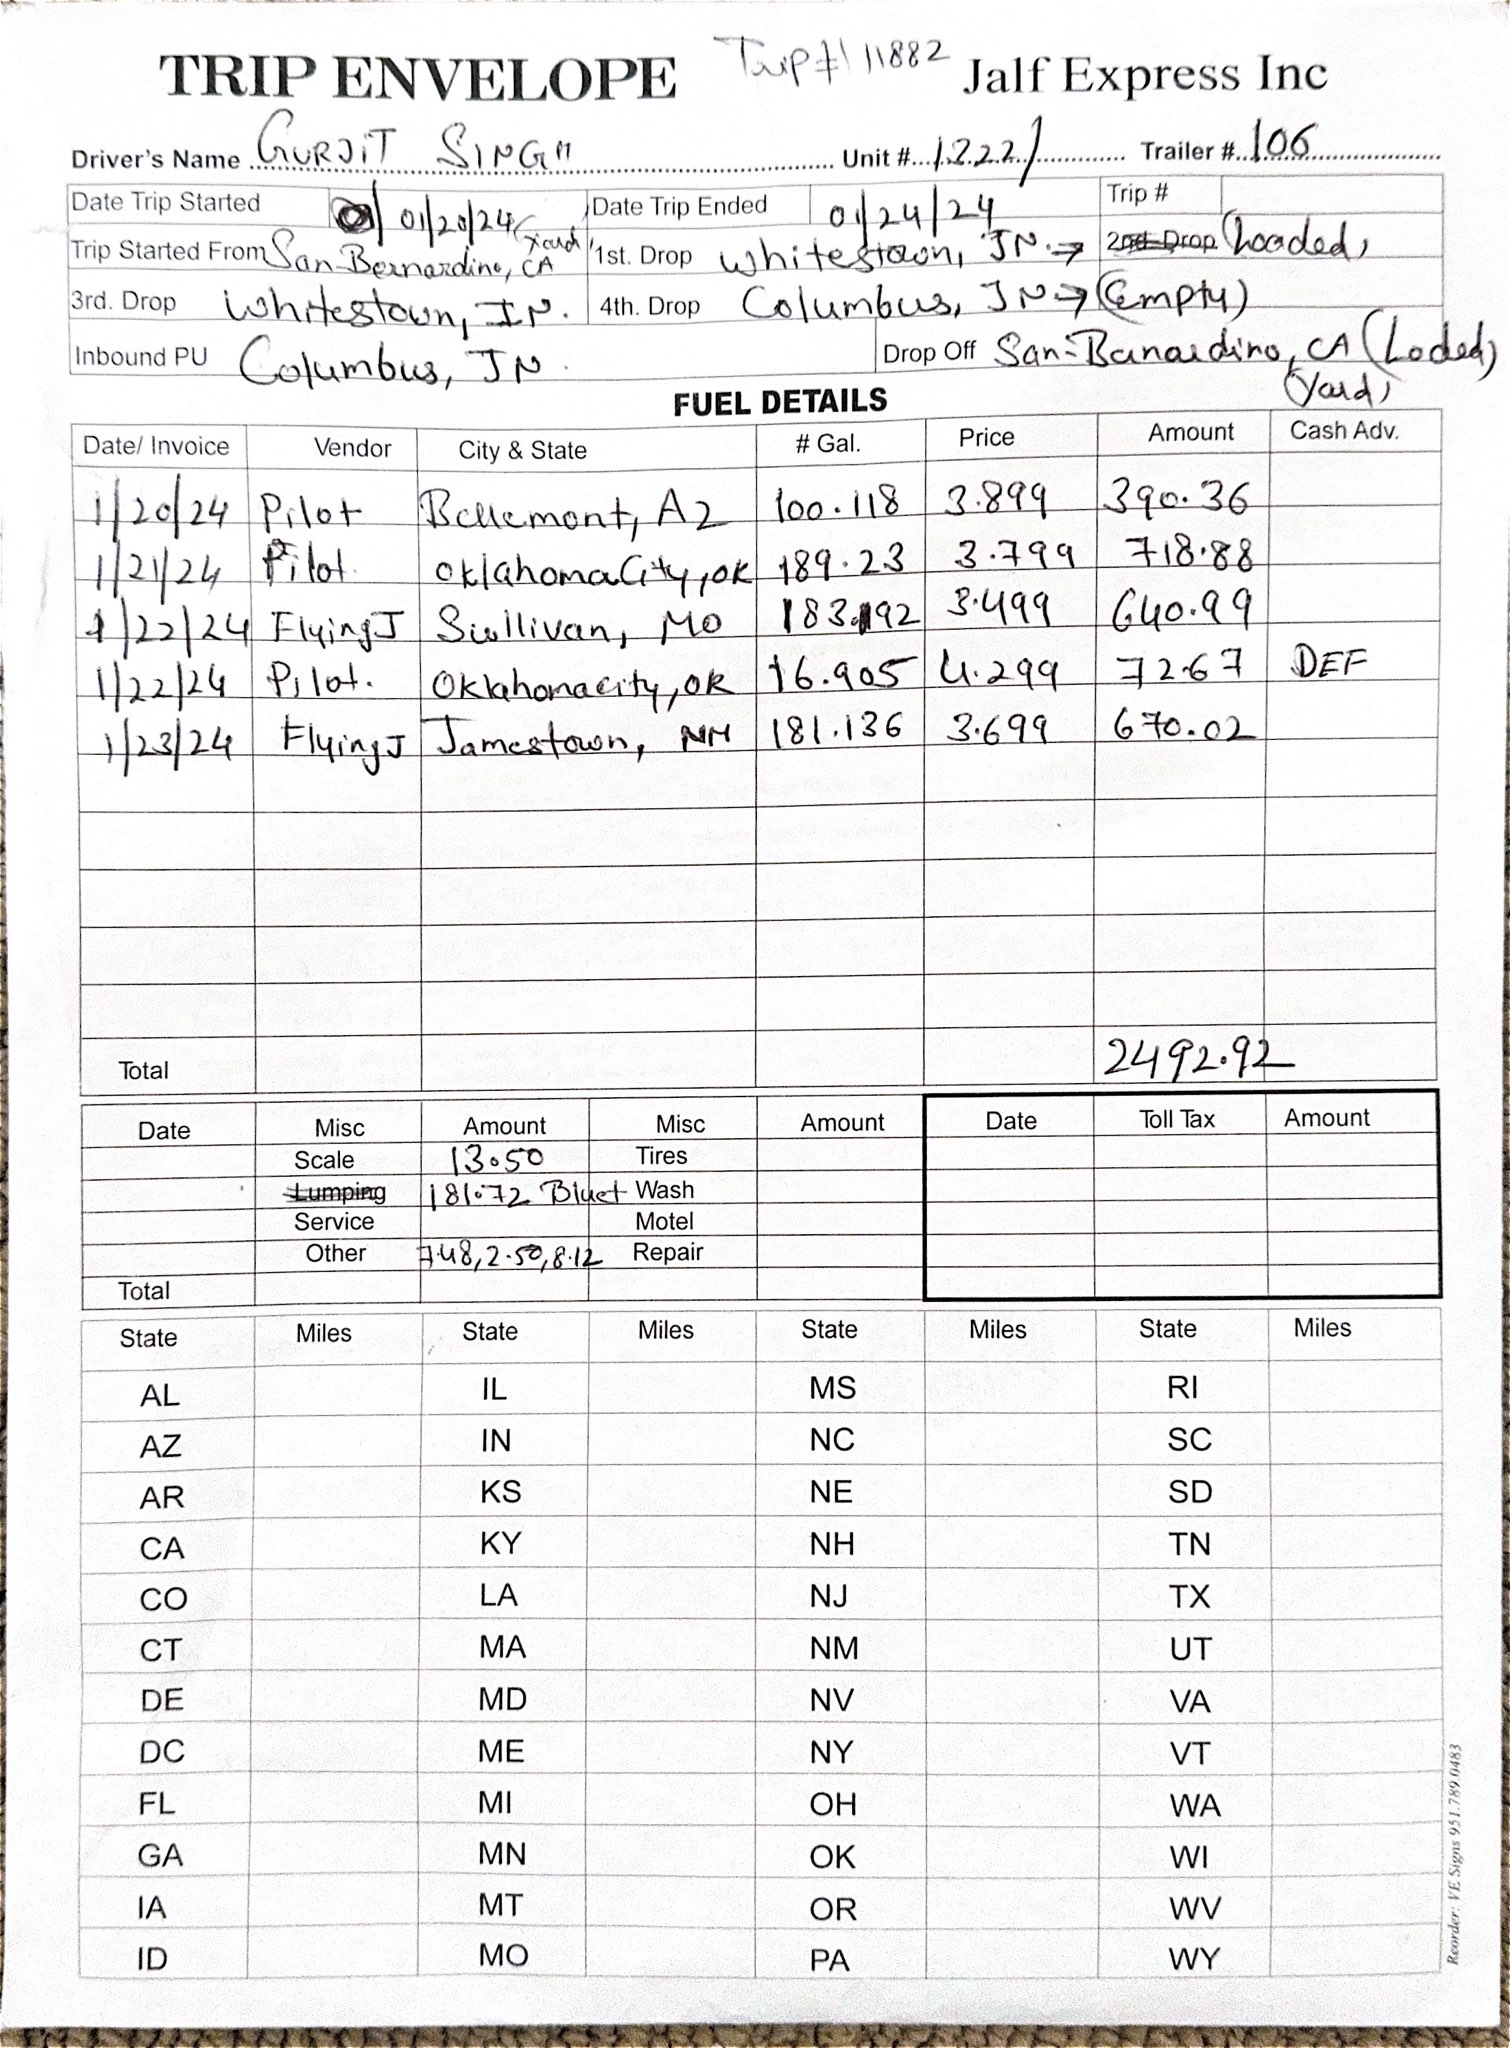 TRIP ENVELOPE Trip # 11882 Jalf Express Inc
Driver's Name GURJIT SINGH Unit # 1222 Trailer # 106
Date Trip Started 01/20/24 Date Trip Ended 01/24/24 Trip #
Trip Started From San-Bernardino, CA (yard) 1st. Drop Whitestown, IN → 2nd Drop (Loaded)
3rd. Drop Whitestown, IN. 4th. Drop Columbus, IN → (Empty)
Inbound PU Columbus, IN. Drop Off San-Banardino, CA (Loded)
(Yard)
FUEL DETAILS
Date/ Invoice Vendor City & State # Gal. Price Amount Cash Adv.
1/20/24 Pilot Bellemont, AZ 100.118 3.899 390.36
1/21/24 Pilot. Oklahoma City, OK 189.23 3.799 718.88
1/22/24 Flying J Sullivan, MO 183.192 3.499 640.99
1/22/24 Pilot. Oklahomacity, OK 16.905 4.299 72.67 DEF
1/23/24 Flying J Jamestown, NM 181.136 3.699 670.02
Total 2492.92
Date Misc Amount Misc Amount Date Toll Tax Amount
Scale 13.50 Tires
Lumping 181.72 Wash
Service Motel
Other 7.48, 2.50, 8.12 Repair
Total
State Miles State Miles State Miles State Miles
AL IL MS RI
AZ IN NC SC
AR KS NE SD
CA KY NH TN
CO LA NJ TX
CT MA NM UT
DE MD NV VA
DC ME NY VT
FL MI OH WA
GA MN OK WI
IA MT OR WV
ID MO PA WY
Reorder: VE Signs 951.789.0483